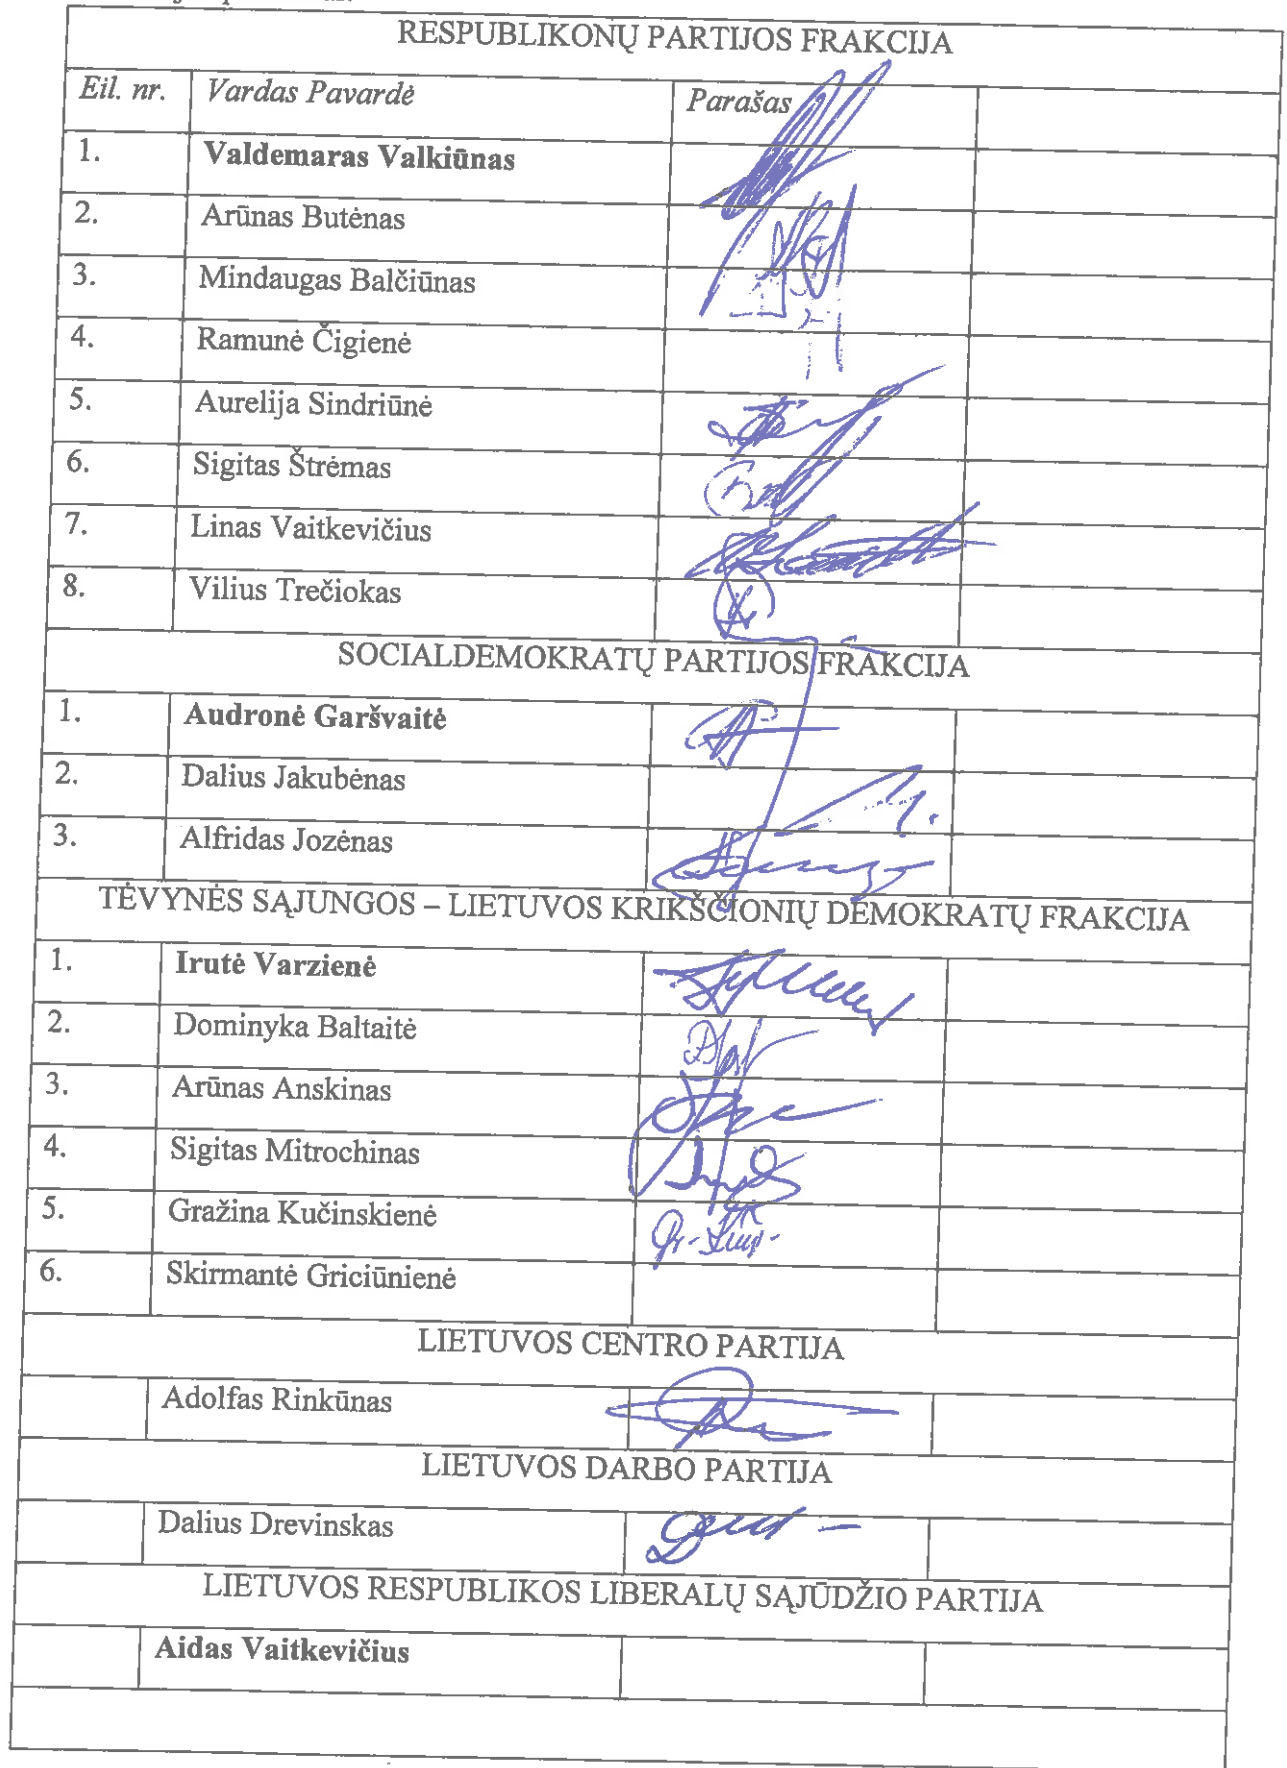 RESPUBLIKONŲ PARTIJOS FRAKCIJA
Eil. nr. Vardas Pavardė Parašas
1. Valdemaras Valkiūnas
2. Arūnas Butėnas
3. Mindaugas Balčiūnas
4. Ramunė Čigienė
5. Aurelija Sindriūnė
6. Sigitas Štrėmas
7. Linas Vaitkevičius
8. Vilius Trečiokas
SOCIALDEMOKRATŲ PARTIJOS FRAKCIJA
1. Audronė Garšvaitė
2. Dalius Jakubėnas
3. Alfridas Jozėnas
TĖVYNĖS SĄJUNGOS – LIETUVOS KRIKŠČIONIŲ DEMOKRATŲ FRAKCIJA
1. Irutė Varzienė
2. Dominyka Baltaitė
3. Arūnas Anskinas
4. Sigitas Mitrochinas
5. Gražina Kučinskienė
6. Skirmantė Griciūnienė
LIETUVOS CENTRO PARTIJA
Adolfas Rinkūnas
LIETUVOS DARBO PARTIJA
Dalius Drevinskas
LIETUVOS RESPUBLIKOS LIBERALŲ SĄJŪDŽIO PARTIJA
Aidas Vaitkevičius